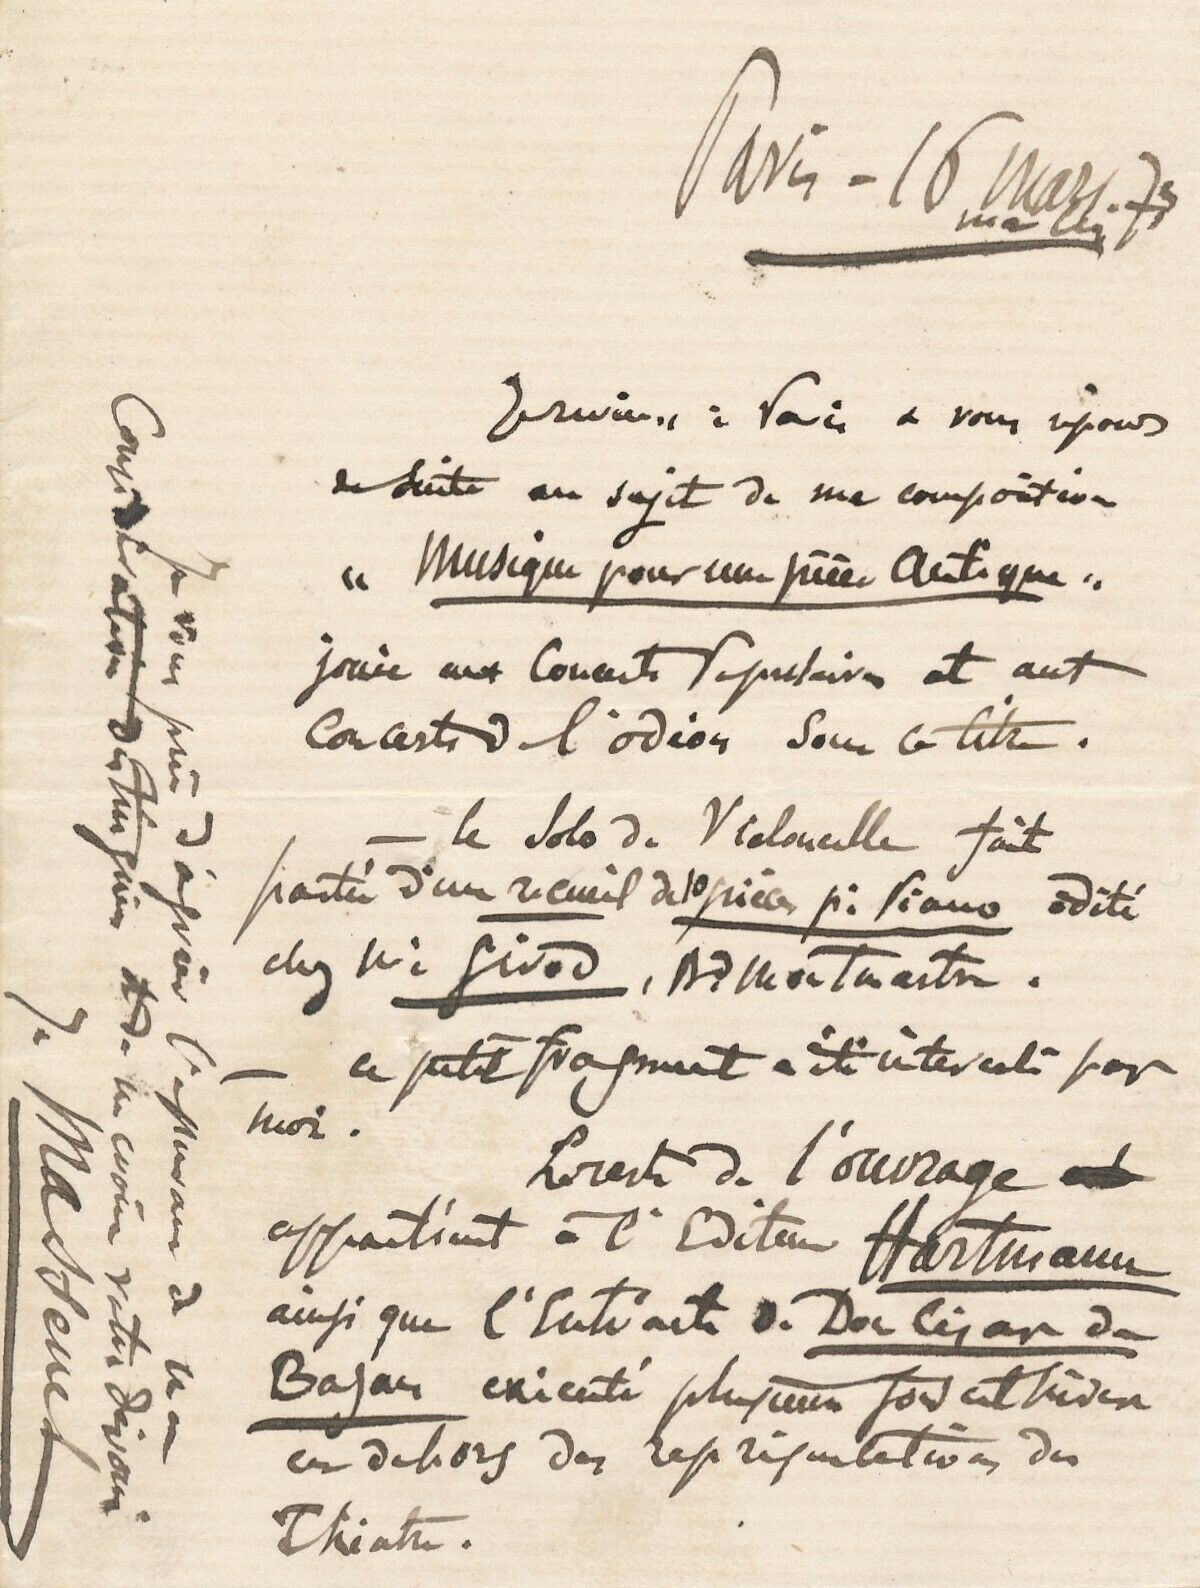 Paris - 16 Mars. 73
Je reviens à Paris & vous réponds
de suite au sujet de ma composition
" Musique pour une pièce Antique "
jouée aux Concerts Populaires et aux
Concerts de l'odéon sous ce titre.
— le Solo de Violoncelle fait
partie d'un recueil de 10 pièces pr Piano édité
chez Mr Girod, Bd Montmartre.
— ce petit fragment a été intercalé par
moi.
Le reste de l'ouvrage
appartient à l'Editeur Hartmann
ainsi que l'Entr'acte de Don César de
Bazan exécuté plusieurs fois cet hiver
en dehors des représentations du
Théâtre.
Je vous prie d'agréer l'assurance de ma
Considération distinguée et de me croire votre dévoué
J. Massenet